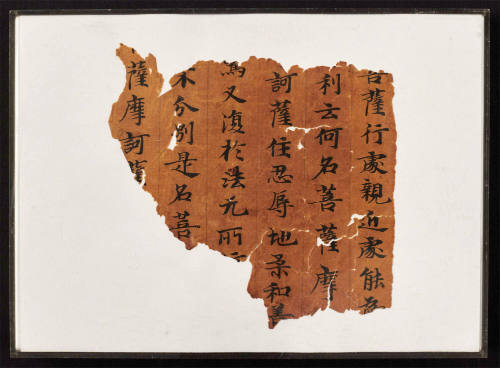 菩薩行處親近處能
利云何名菩薩摩
訶薩住忍辱地柔和善
又復於法无所
不分別是名菩
薩摩訶薩